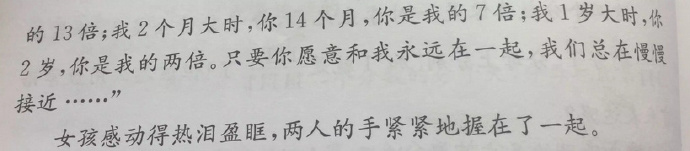 的 13 倍;我 2 个月大时,你 14 个月,你是我的 7 倍;我 1 岁大时,你
2 岁,你是我的两倍。只要你愿意和我永远在一起,我们总在慢慢
接近……”
女孩感动得热泪盈眶,两人的手紧紧地握在了一起。